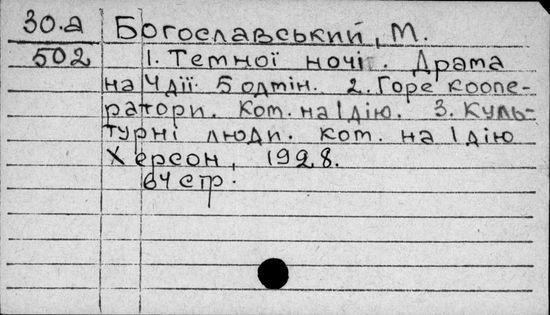 30.а Богославський, М.
502 1. Темної ночі. Драма
на 4 дії 5 одмін. 2. Горе коопе-
ратори. Ком. на 1 дію. 3. Куль-
турні люди. Ком. на 1 дію
Херсон, 1928.
64 стр.